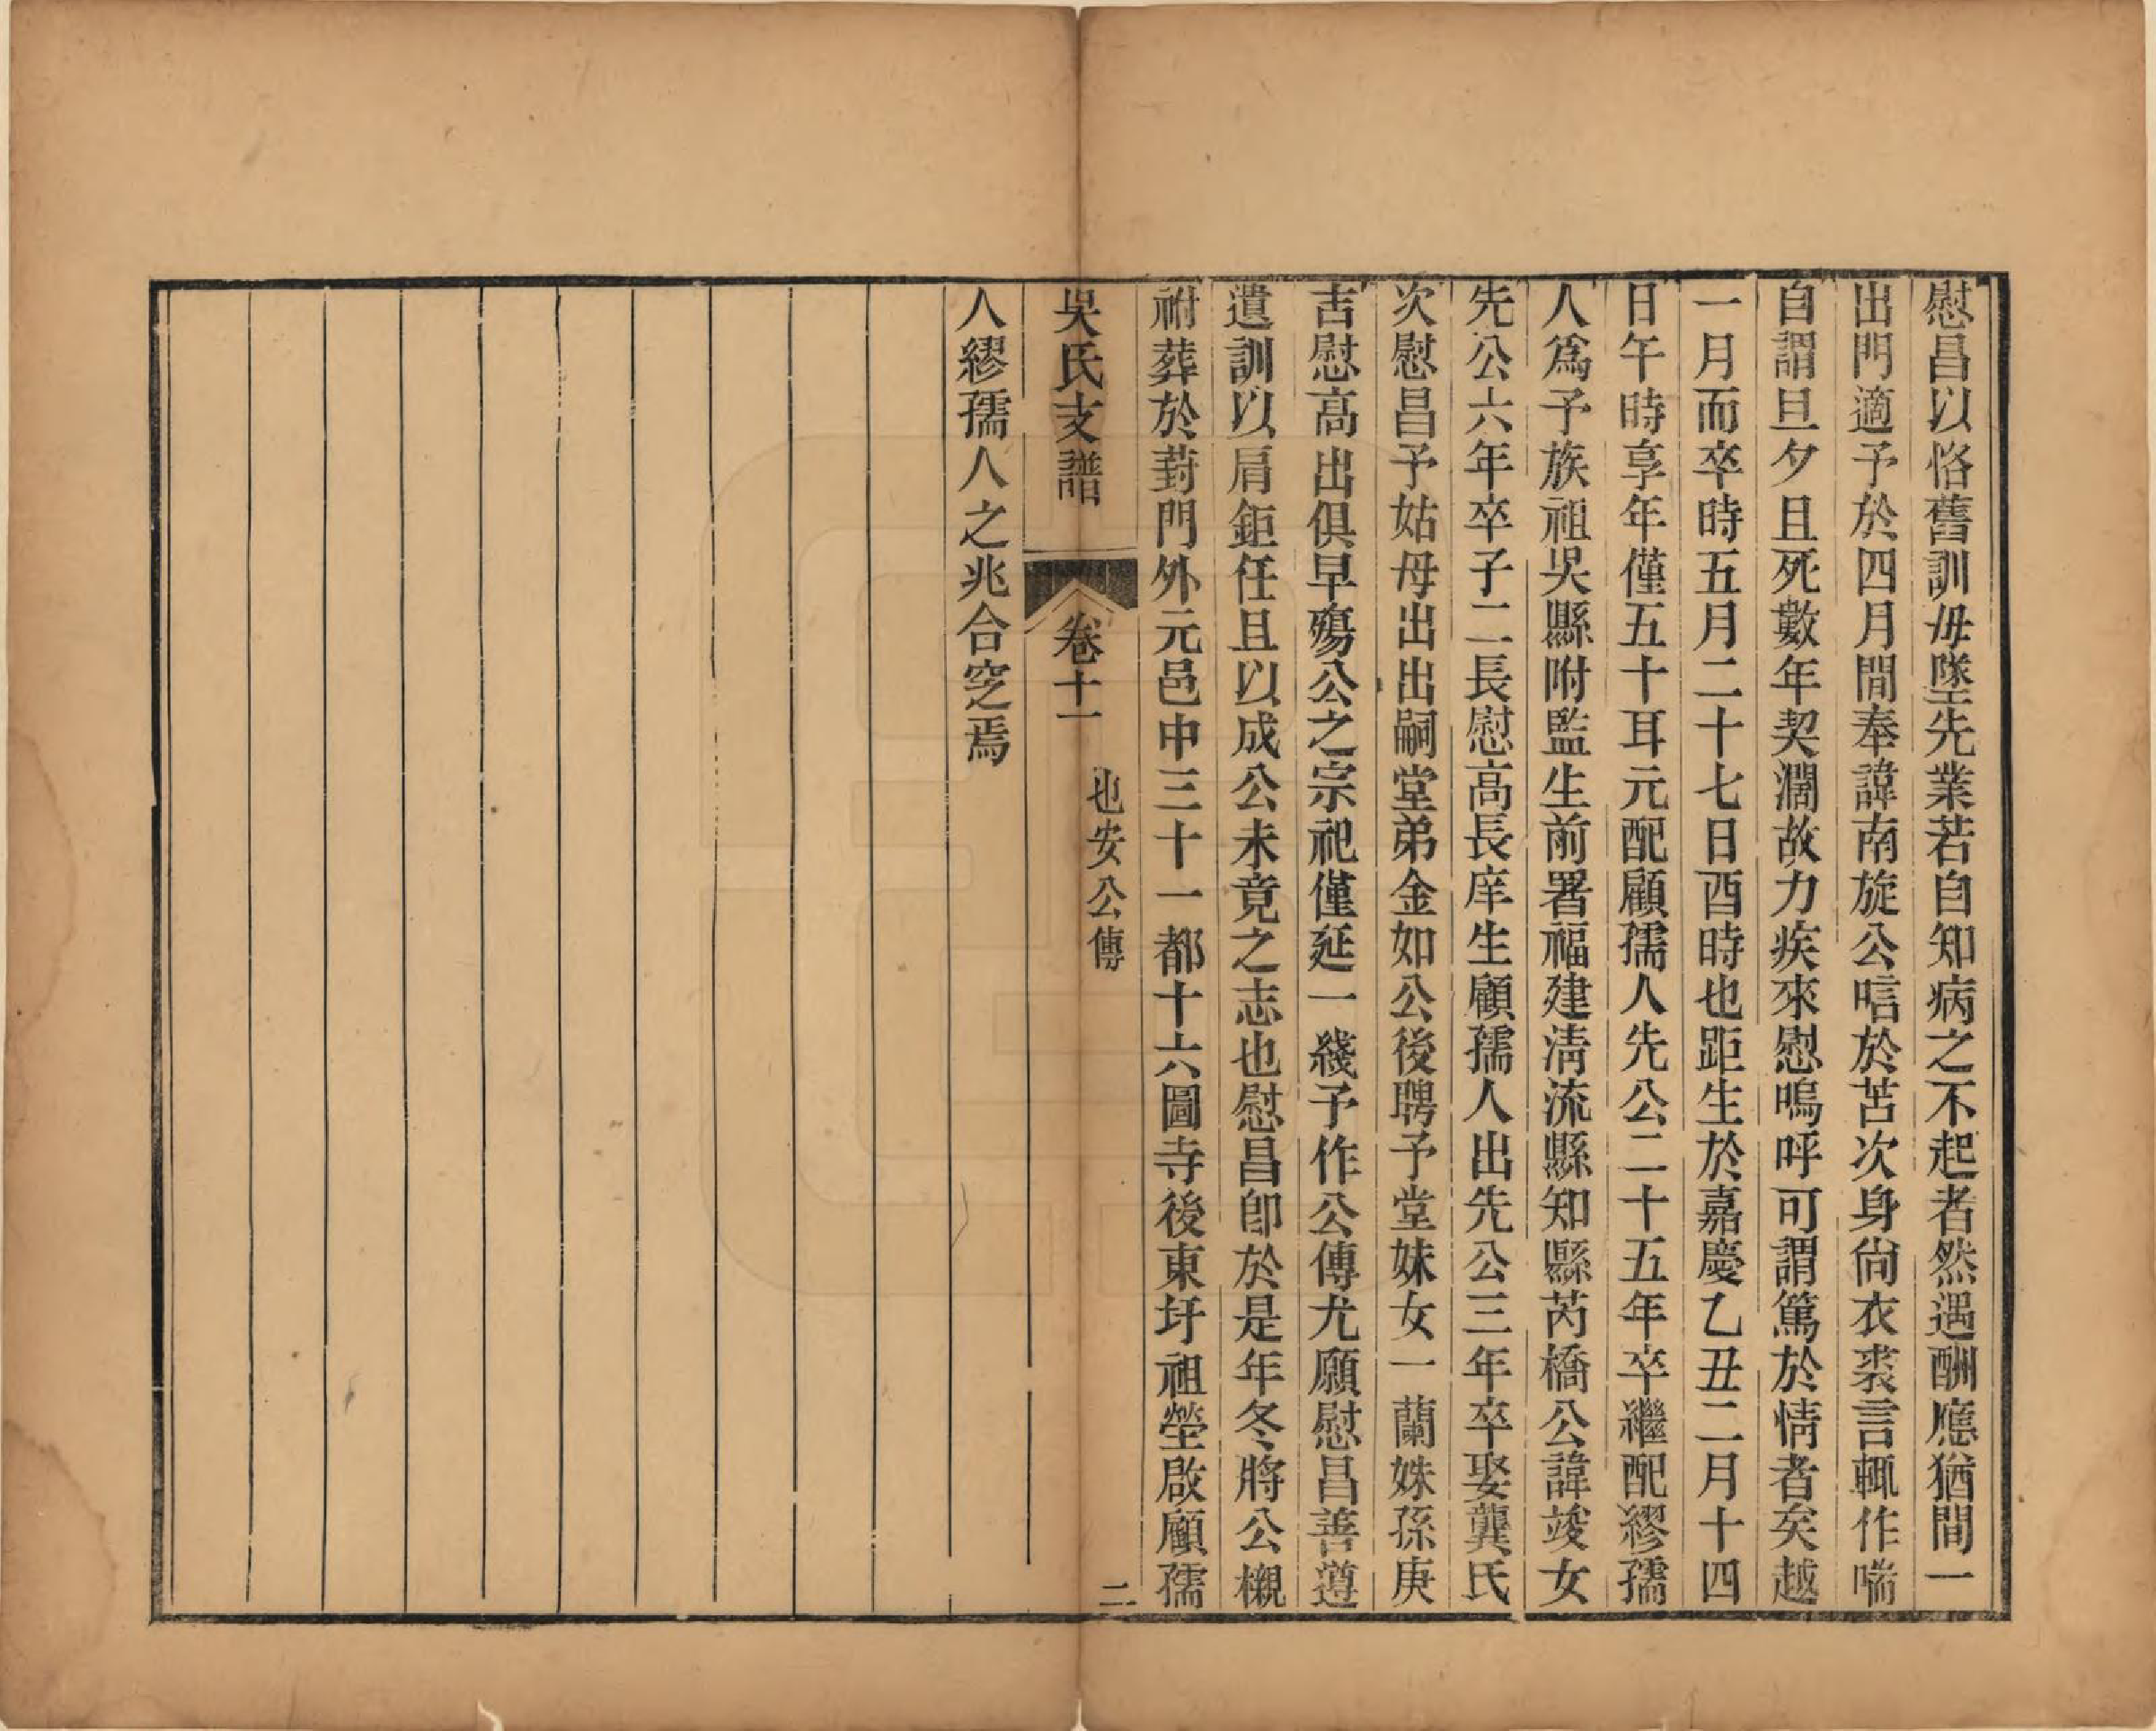 慰昌以恪舊訓毋墜先業若自知病之不起者然遇酬應猶間一
出門適予於四月間奉諱南旋公唁於苫次身尙衣裘言輒作喘
自謂旦夕且死數年契濶故力疾來慰嗚呼可謂篤於情者矣越
一月而卒時五月二十七日酉時也距生於嘉慶乙丑二月十四
日午時享年僅五十耳元配顧孺人先公二十五年卒繼配繆孺
人爲予族祖吳縣附監生前署福建淸流縣知縣芮橋公諱竣女
先公六年卒子二長慰高長庠生顧孺人出先公三年卒娶龔氏
次慰昌予姑母出出嗣堂弟金如公後聘予堂妹女一蘭姝孫庚
吉慰高出俱早殤公之宗祀僅延一綫予作公傳尤願慰昌善遵
遺訓以肩鉅任且以成公未竟之志也慰昌卽於是年冬將公櫬
祔葬於葑門外元邑中三十一都十六圖寺後東圩祖塋啟顧孺
吳氏支譜
卷十一
也安公傳
二
人繆孺人之兆合窆焉